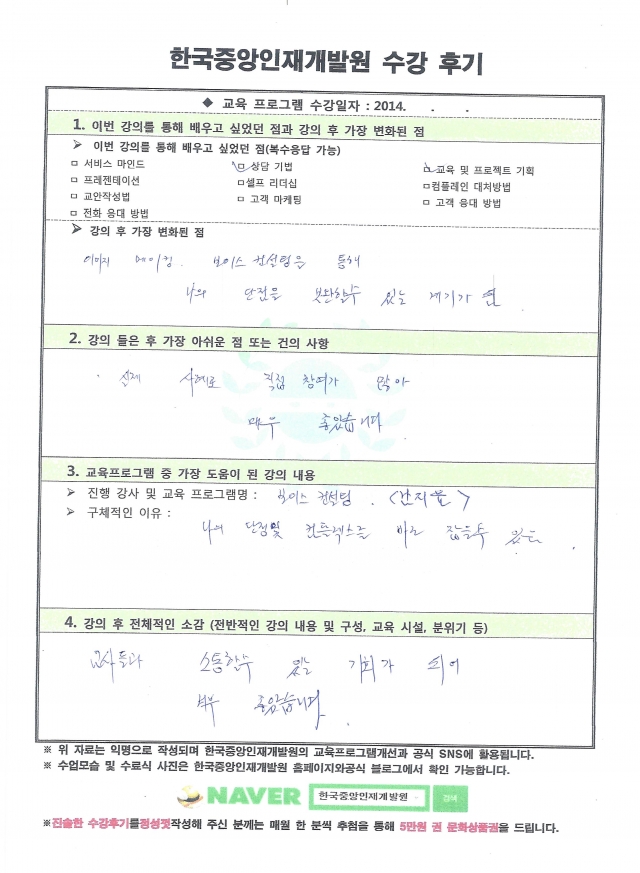 한국중앙인재개발원 수강 후기
◆ 교육 프로그램 수강일자 : 2014. . .
1. 이번 강의를 통해 배우고 싶었던 점과 강의 후 가장 변화된 점
➢ 이번 강의를 통해 배우고 싶었던 점(복수응답 가능)
□ 서비스 마인드 □ 상담 기법 □ 교육 및 프로젝트 기획
□ 프레젠테이션 □ 셀프 리더십 □ 컴플레인 대처방법
□ 교안작성법 □ 고객 마케팅 □ 고객 응대 방법
□ 전화 응대 방법
➢ 강의 후 가장 변화된 점
이미지 메이킹. 보이스 컨설팅을 통해
나의 단점을 보완할수 있는 계기가 된
2. 강의 들은 후 가장 아쉬운 점 또는 건의 사항
. 실제 사례로 직접 참여가 많아
매우 좋았습니다
3. 교육프로그램 중 가장 도움이 된 강의 내용
➢ 진행 강사 및 교육 프로그램명 : 보이스 컨설팅.
➢ 구체적인 이유 :
나의 단점및 컴플렉스를 바로 잡을수 있는
4. 강의 후 전체적인 소감 (전반적인 강의 내용 및 구성, 교육 시설, 분위기 등)
교사들과 소통할수 있는 기회가 되어
너무 좋았습니다.
※ 위 자료는 익명으로 작성되며 한국중앙인재개발원의 교육프로그램개선과 공식 SNS에 활용됩니다.
※ 수업모습 및 수료식 사진은 한국중앙인재개발원 홈페이지와공식 블로그에서 확인 가능합니다.
NAVER 한국중앙인재개발원 검색
※진솔한 수강후기를정성껏작성해 주신 분께는 매월 한 분씩 추첨을 통해 5만원 권 문화상품권을 드립니다.